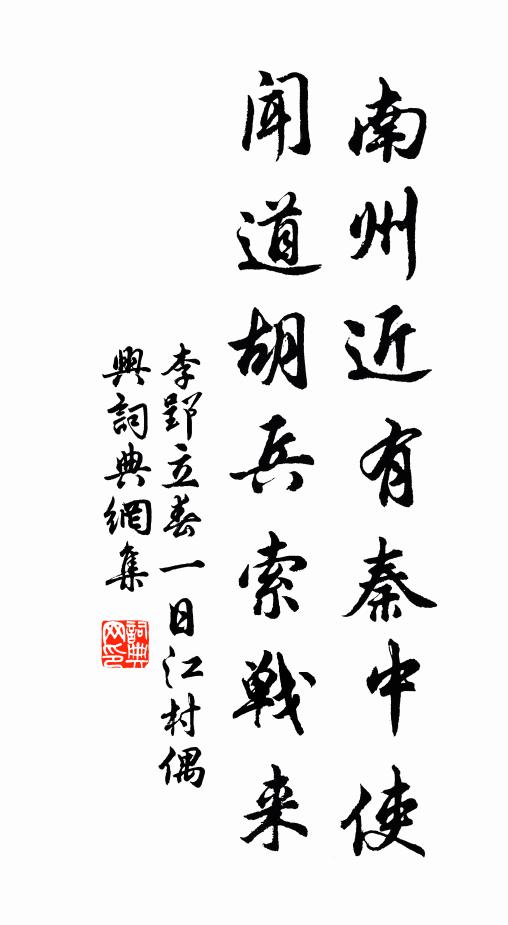 南州近有秦中使
聞道胡兵索戰来
李郢立春一日江村偶
興詞典網集
詞典
网印